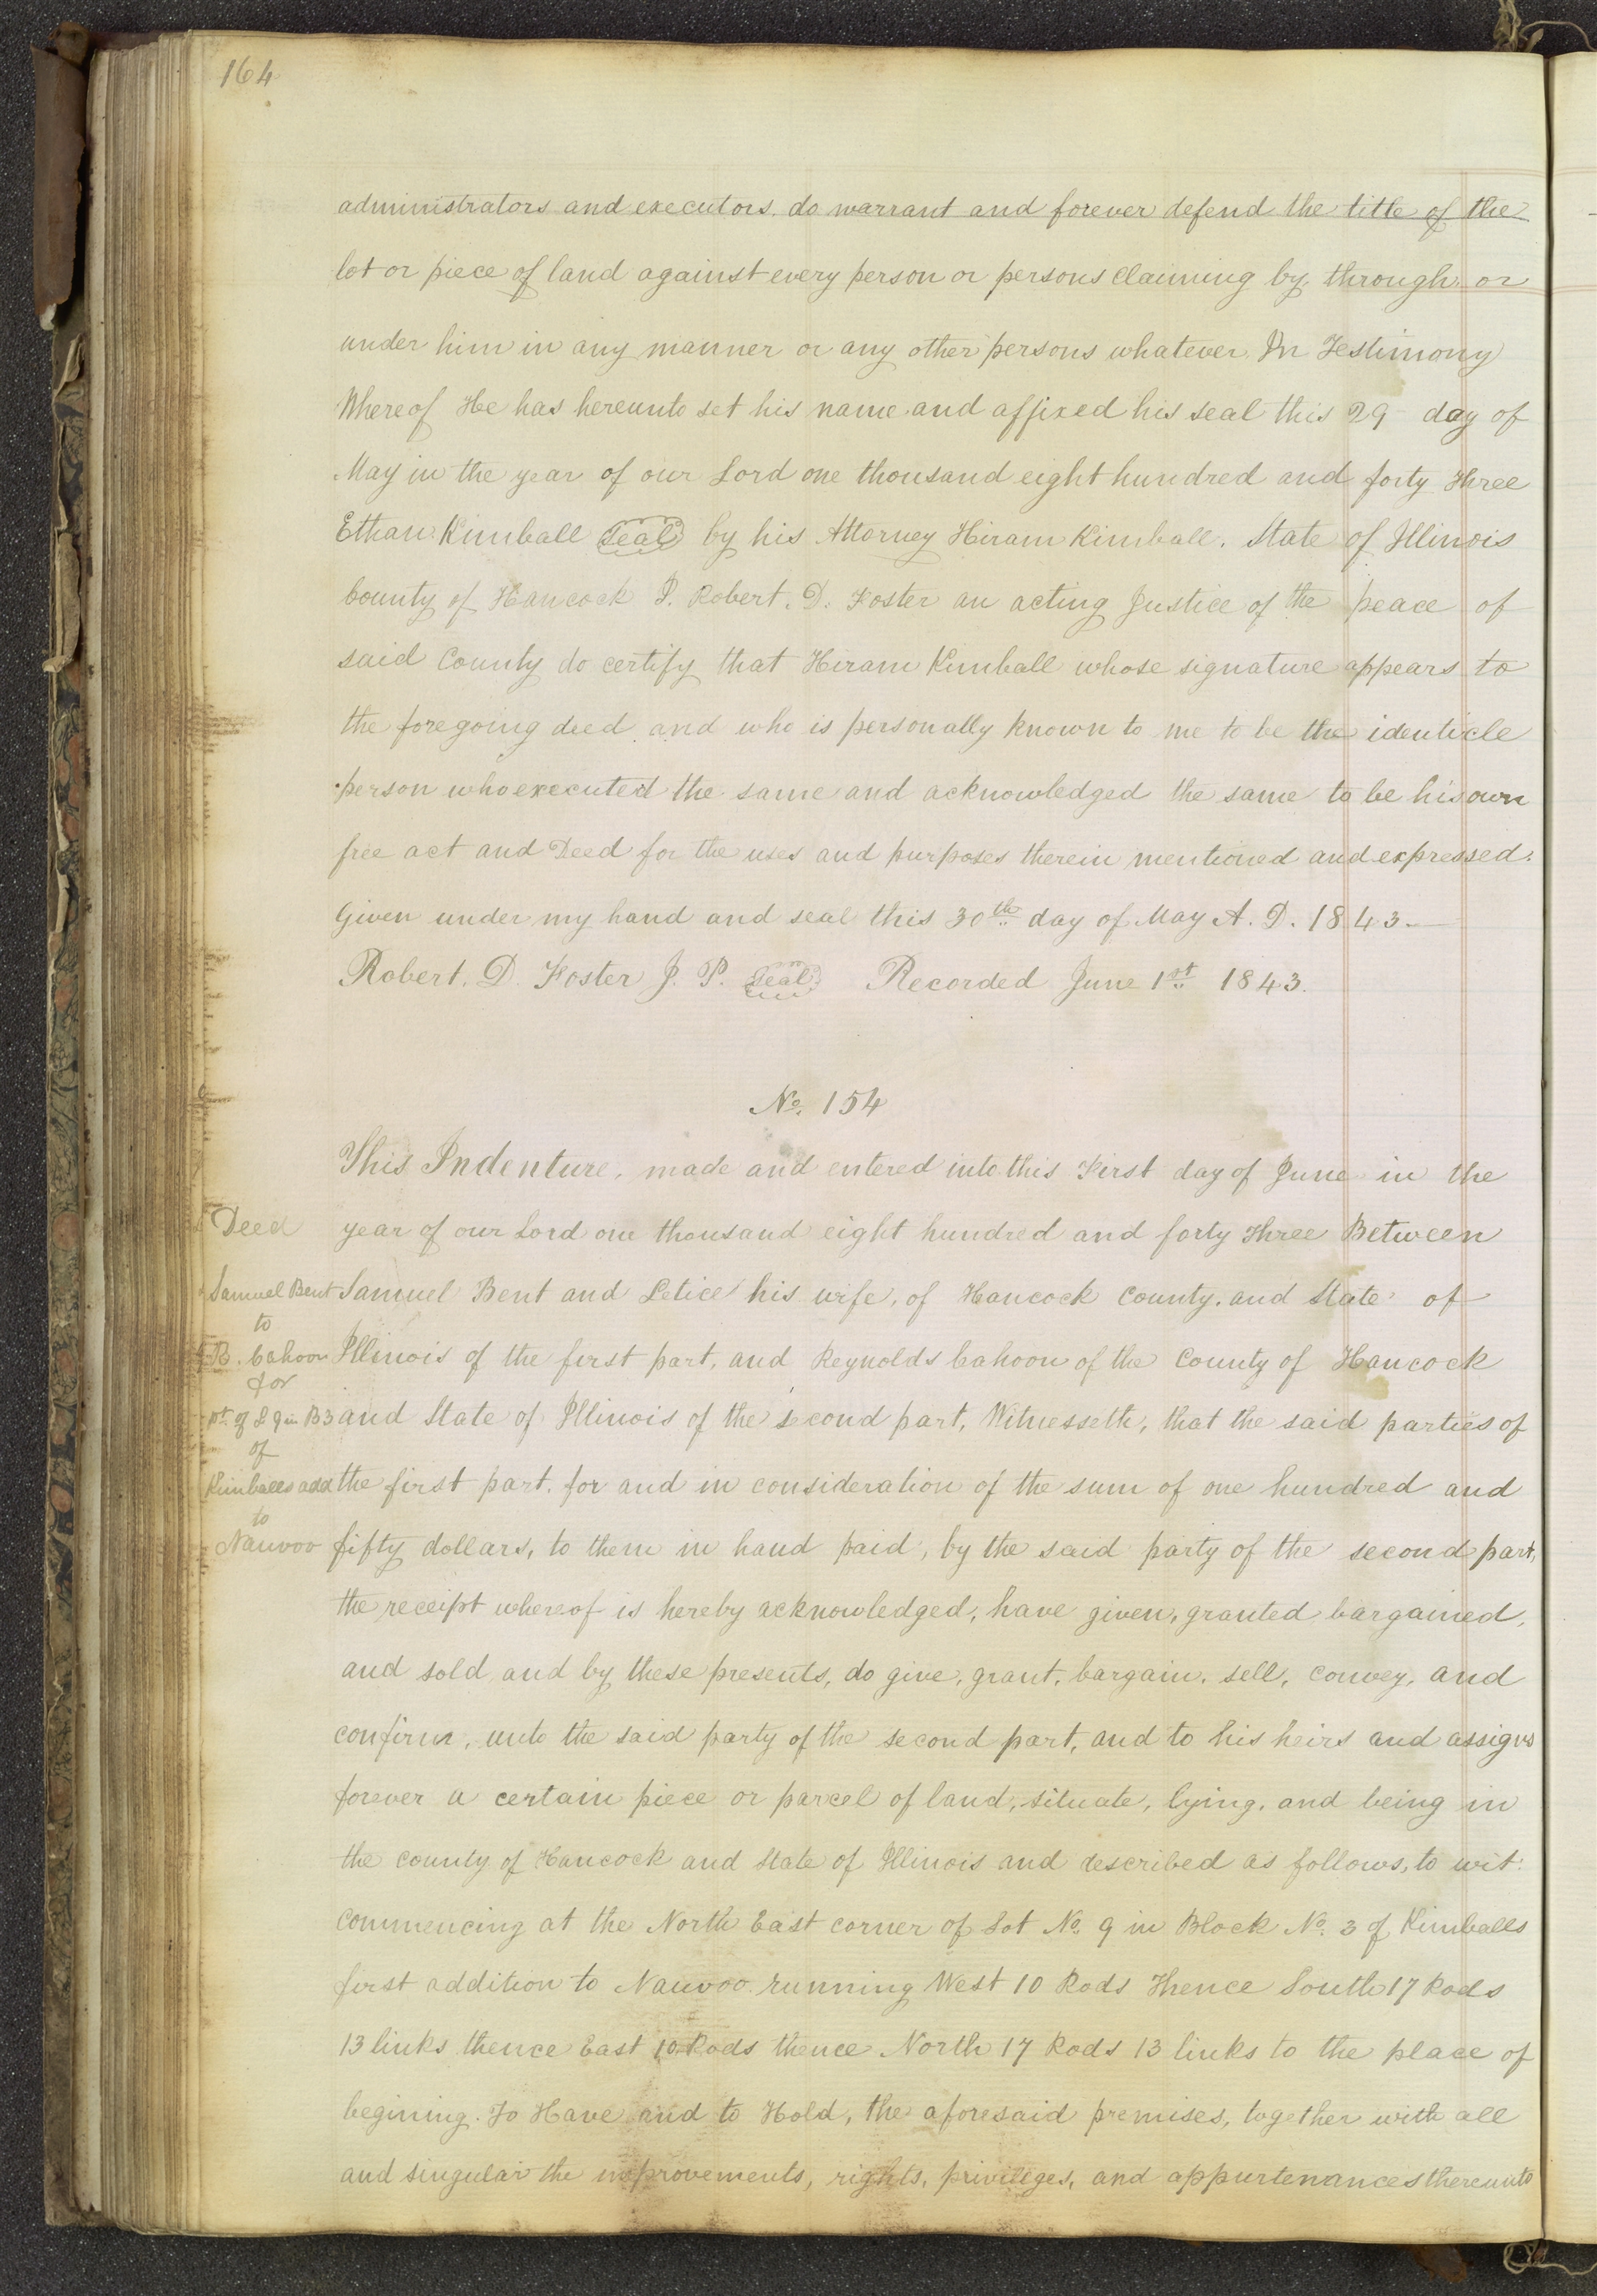 164
administrators and executors. do warrant and forever defend the title of the
lot or piece of land against every person or persons claiming by, through, or
under him in any manner or any other persons whatever. In Testimony
Whereof He has hereunto set his name and affixed his seal this 29 day of
May in the year of our Lord one thousand eight hundred and forty three
Ethan Kimball Seal by his Attorney Hiram Kimball. State of Illinois
County of Hancock I. Robert. D. Foster an acting Justice of the peace of
said County do certify that Hiram Kimball whose signature appears to
the foregoing deed and who is personally known to me to be the identicle
person who executed the same and acknowledged the same to be his own
free act and Deed for the uses and purposes therein mentioned and expressed.
Given under my hand and seal this 30th day of May A. D. 1843.
Robert. D. Foster J. P. Seal Recorded June 1st 1843.
No. 154
This Indenture, made and entered into this First day of June in the
Deed year of our Lord one thousand eight hundred and forty three Between
Samuel Bent Samuel Bent and Letice his wife, of Hancock County, and State of
to
R. Cahoon Illinois of the first part, and Reynolds Cahoon of the County of Hancock
for
pt. of L 9 in B3 and State of Illinois of the second part, Witnesseth, that the said parties of
of
Kimballs add the first part, for and in consideration of the sum of one hundred and
to
Nauvoo fifty dollars, to them in hand paid, by the said party of the second part,
the receipt whereof is hereby acknowledged, have given, granted bargained,
and sold and by these presents, do give, grant, bargain, sell, convey, and
confirm, unto the said party of the second part, and to his heirs and assigns
forever a certain piece or parcel of land, situate, lying, and being in
the county of Hancock and State of Illinois and described as follows, to wit:
Commencing at the North East corner of Lot No. 9 in Block No. 3 of Kimballs
first addition to Nauvoo running West 10 Rods Thence South 17 Rods
13 links thence East 10 Rods thence North 17 Rods 13 links to the place of
begining. To Have and to Hold, the aforesaid premises, together with all
and singular the improvements, rights, privileges, and appurtenances thereunto